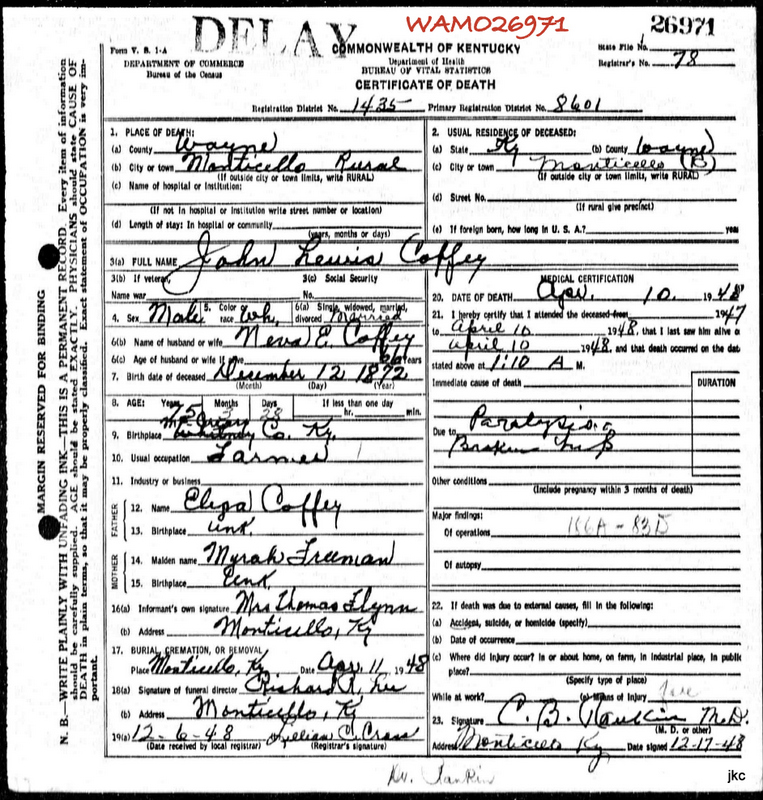 DELAY WAMO26971 26971
Form V. S. 1-A COMMONWEALTH OF KENTUCKY State File No.
DEPARTMENT OF COMMERCE Department of Health Registrar's No. 78
Bureau of the Census BUREAU OF VITAL STATISTICS
CERTIFICATE OF DEATH
Registration District No. 1435 Primary Registration District No. 8601
MARGIN RESERVED FOR BINDING
N. B.—WRITE PLAINLY WITH UNFADING INK—THIS IS A PERMANENT RECORD. Every item of information
should be carefully supplied. AGE should be stated EXACTLY. PHYSICIANS should state CAUSE OF
DEATH in plain terms, so that it may be properly classified. Exact statement of OCCUPATION is very im-
portant.
1. PLACE OF DEATH:
(a) County Wayne
(b) City or town Monticello Rural
(If outside city or town limits, write RURAL)
(c) Name of hospital or institution:
(If not in hospital or institution write street number or location)
(d) Length of stay: In hospital or community
(years, months or days)
2. USUAL RESIDENCE OF DECEASED:
(a) State Ky (b) County Wayne
(c) City or town Monticello (R)
(If outside city or town limits, write RURAL)
(d) Street No.
(If rural give precinct)
(e) If foreign born, how long in U. S. A.? years
3(a) FULL NAME John Lewis Coffey
3(b) If veteran, 3(c) Social Security
Name war No.
4. Sex Male 5. Color race Wh. 6(a) Single, widowed, married, divorced Married
6(b) Name of husband or wife Neva E. Coffey
6(c) Age of husband or wife if alive 66 years
7. Birth date of deceased December 12 1872
(Month) (Day) (Year)
8. AGE: Years Months Days If less than one day
75 3 28 hr. min.
McCreary
9. Birthplace Whitney Co. Ky.
10. Usual occupation Farmer
11. Industry or business
FATHER
12. Name Eliza Coffey
13. Birthplace Unk.
MOTHER
14. Maiden name Myrah Freeman
15. Birthplace Unk
16(a) Informant's own signature Mrs Thomas Flynn
(b) Address Monticello, Ky
17. BURIAL, CREMATION, OR REMOVAL
Place Monticello, Ky Date Apr. 11 1948
18(a) Signature of funeral director Richard A. Lee
(b) Address Monticello, Ky
19(a) 12-6-48 Lillian C. Cross
(Date received by local registrar) (Registrar's signature)
MEDICAL CERTIFICATION
20. DATE OF DEATH Apr. 10. 1948
21. I hereby certify that I attended the deceased from 1947
to April 10 1948, that I last saw him alive o
April 10 1948, and that death occurred on the dat
stated above at 1:10 A M.
Immediate cause of death DURATION
Due to Paralysis
Broken hip
Other conditions
(Include pregnancy within 3 months of death)
Major findings:
Of operations 186A-83D
Of autopsy
22. If death was due to external causes, fill in the following:
(a) Accident, suicide, or homicide (specify)
(b) Date of occurrence
(c) Where did injury occur? In or about home, on farm, in industrial place, in public
place?
(Specify type of place)
While at work? (e) Means of Injury
23. Signature C. B. Rankin M.D.
(M. D. or other)
Address Monticello Ky Date signed 12-17-48
Dr. Rankin
jkc